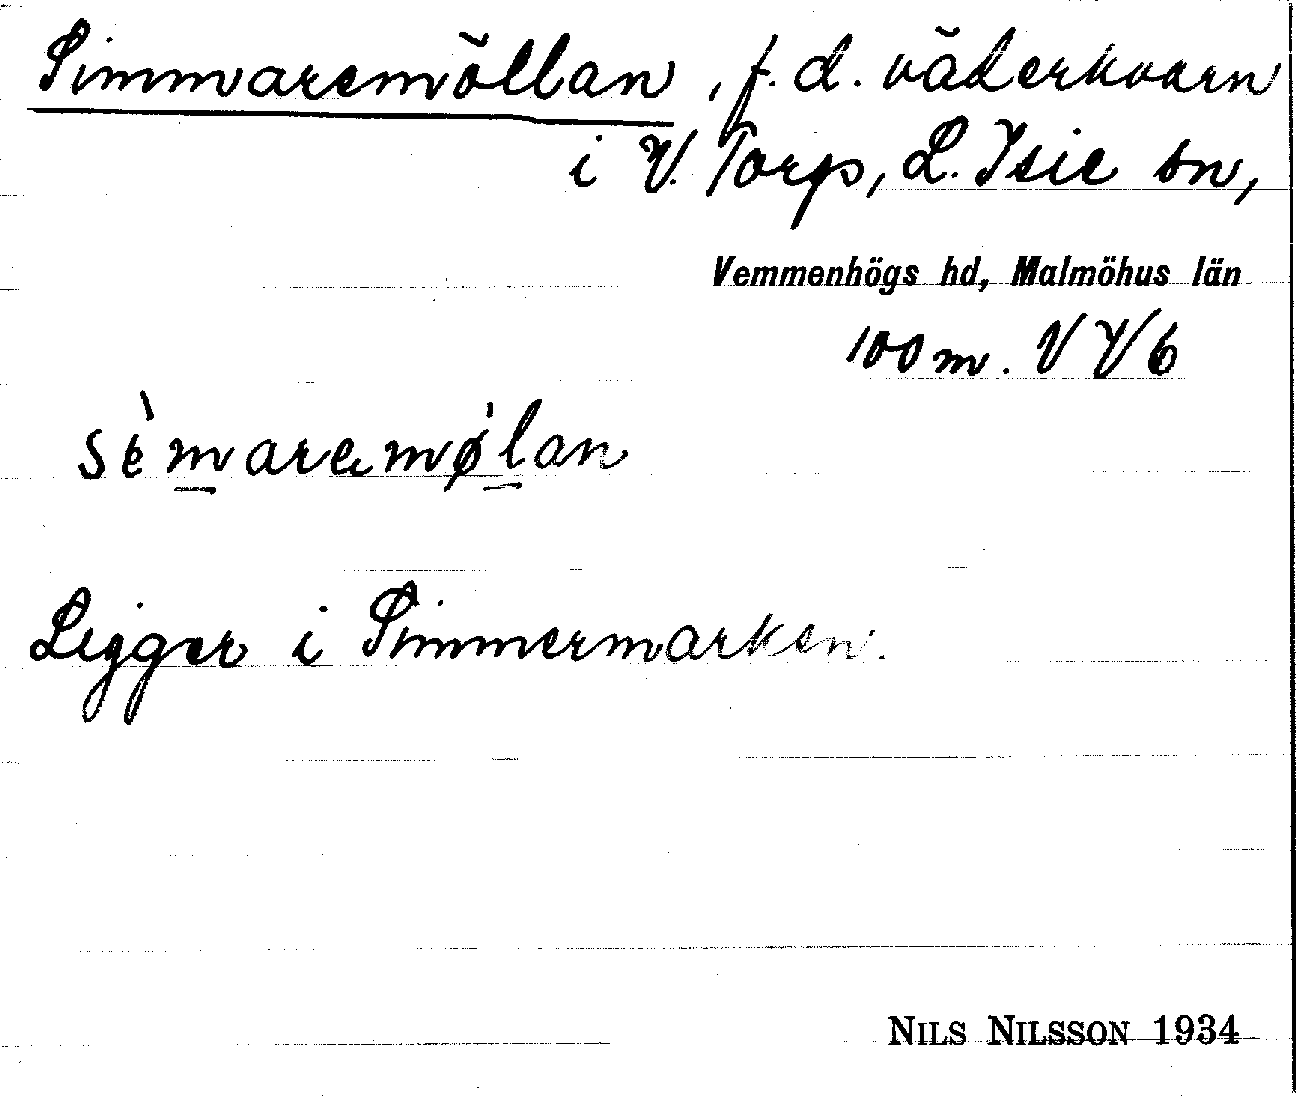 Simmaremöllan, f.d. väderkvarn
i V. Torp, L. Isie sn,
Vemmenhögs hd, Malmöhus län
100 m. V V6
sèmaremø̍lan
Ligger i Simmermarken.
NILS NILSSON 1934